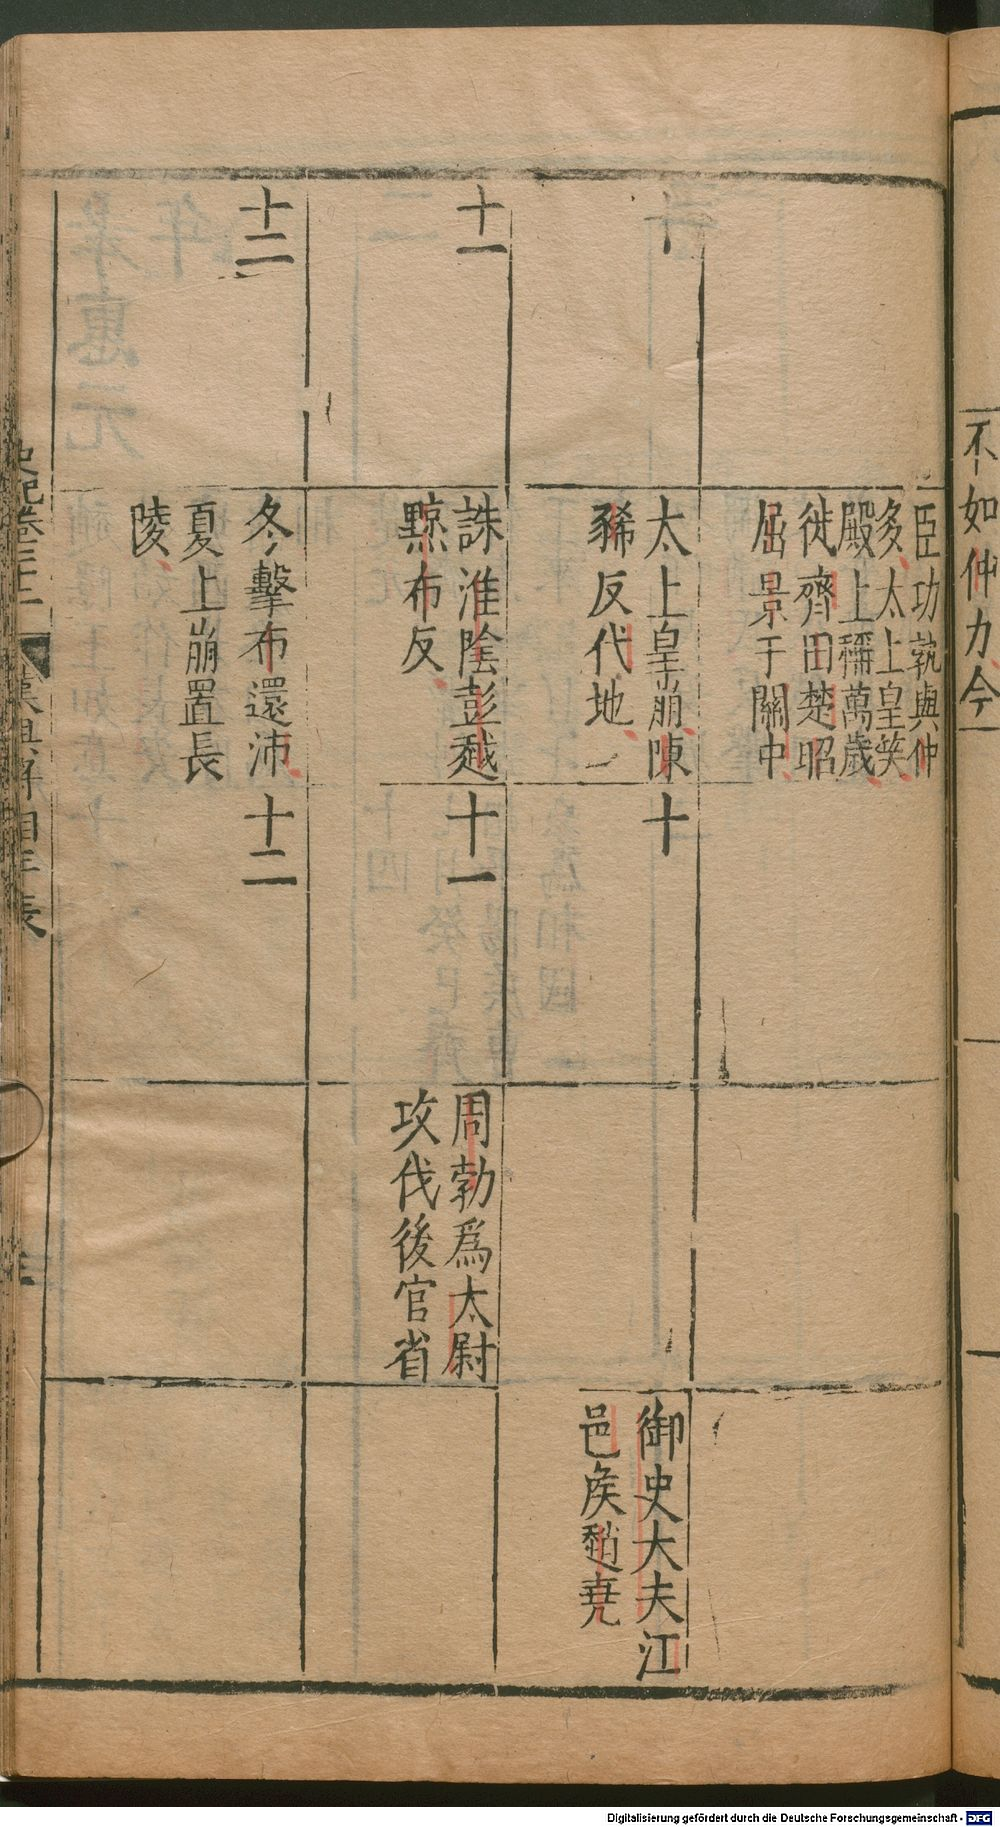 不如仲力今
臣功孰與仲
多太上皇笑
殿上稱萬歲
徙齊田楚昭
屈景于關中
十
太上皇崩陳
豨反代地
十
御史大夫江
邑侯趙堯
十一
誅淮陰彭越
黥布反
十一
周勃爲太尉
攻伐後官省
十二
冬擊布還沛
夏上崩置長
陵
十二
Digitalisierung gefördert durch die Deutsche Forschungsgemeinschaft - DFG